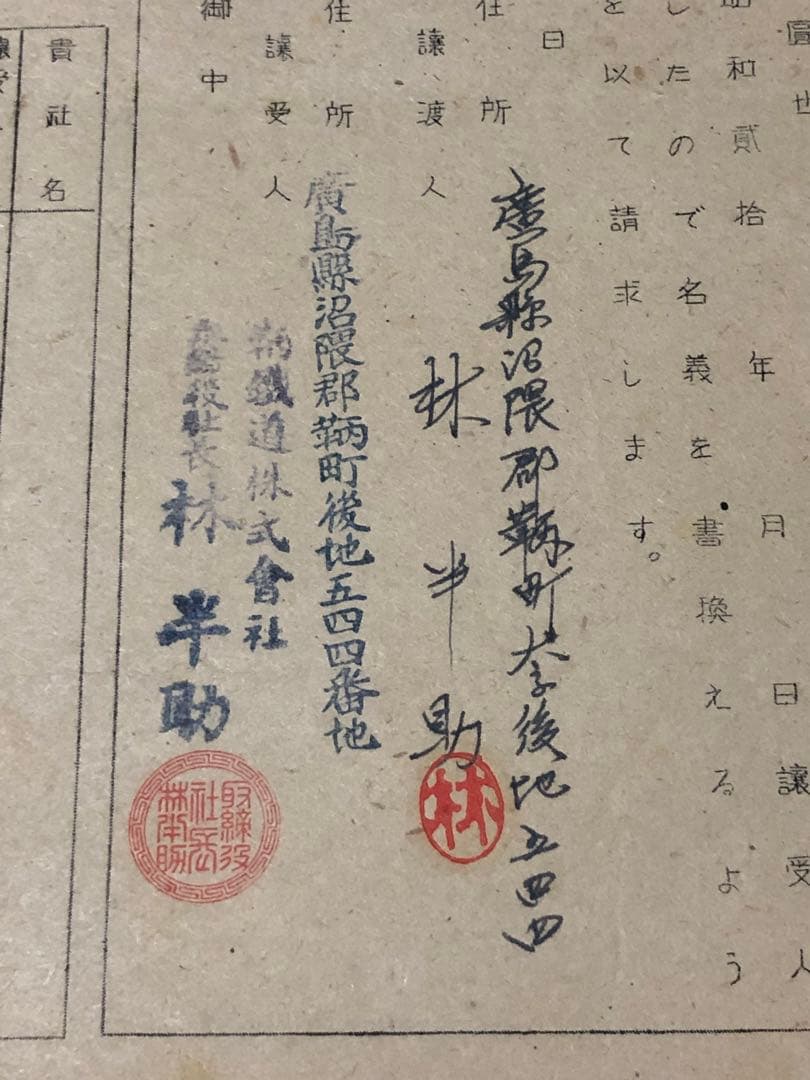 圓也
昭和貳拾 年 月 日讓受人
したので名義を書換えるよう
を以て請求します。
日
住所 廣島縣沼隈郡鞆町大字後地五四四
讓渡人 林半助
林
住所 廣島縣沼隈郡鞆町後地五四四番地
讓受人 鞆鐵道株式會社
取締役社長 林半助
取締役
社長
林半助
御中
貴社名
讓受